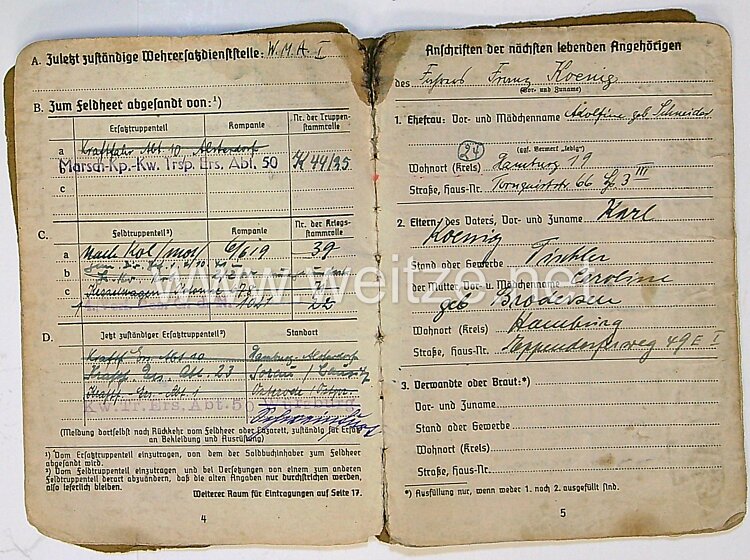 A. Zuletzt zuständige Wehrersatzdienststelle: W.M.A. I
B. Zum Feldheer abgesandt von:¹)
Ersatztruppenteil
Kompanie
Nr. der Truppen-
stammrolle
a Kraftfahr Abt 10 Alsterdorf
b Marsch-Kp.-Kw. Trsp. Ers. Abt. 50 K 44/35
c
C.
Feldtruppenteil²)
Kompanie
Nr. der Kriegs-
stammrolle
a Nach 6/619 39
b
c
1021 22
D.
Jetzt zuständiger Ersatztruppenteil²)
Standort
Kraftf. Ers. Abt 10 Hamburg-Alsterdorf
Kraftf. Ers. Abt. 23 Sorau / Lausitz
Kraftf. Ers.-Abt. 1 Osterode / Ostpr.
Kw.Tr.Ers.Abt.50
(Meldung dortselbst nach Rückkehr vom Feldheer oder Lazarett, zuständig für Ersatz
an Bekleidung und Ausrüstung)
¹) Vom Ersatztruppenteil einzutragen, von dem der Soldbuchinhaber zum Feldheer
abgesandt wird.
²) Vom Feldtruppenteil einzutragen und bei Versetzungen von einem zum anderen
Feldtruppenteil derart abzuändern, daß die alten Angaben nur durchstrichen werden,
also leserlich bleiben.
Weiterer Raum für Eintragungen auf Seite 17.
4
Anschriften der nächsten lebenden Angehörigen
des Franz Koenig
(Vor- und Zuname)
1. Ehefrau: Vor- und Mädchenname Adolfine geb Schneider
(ggf. Vermerk „ledig“)
Wohnort (Kreis) (24) Hamburg 19
Straße, Haus-Nr. Tornquiststr 66 III
2. Eltern: des Vaters, Vor- und Zuname Karl
Koenig
Stand oder Gewerbe Tischler
der Mutter, Vor- u. Mädchenname Caroline
geb Brodersen
Wohnort (Kreis) Hamburg
Straße, Haus-Nr. Eppendorferweg 49 E I
3. Verwandte oder Braut:*)
Vor- und Zuname
Stand oder Gewerbe
Wohnort (Kreis)
Straße, Haus-Nr.
*) Ausfüllung nur, wenn weder 1. noch 2. ausgefüllt sind.
5
www.weitze.net